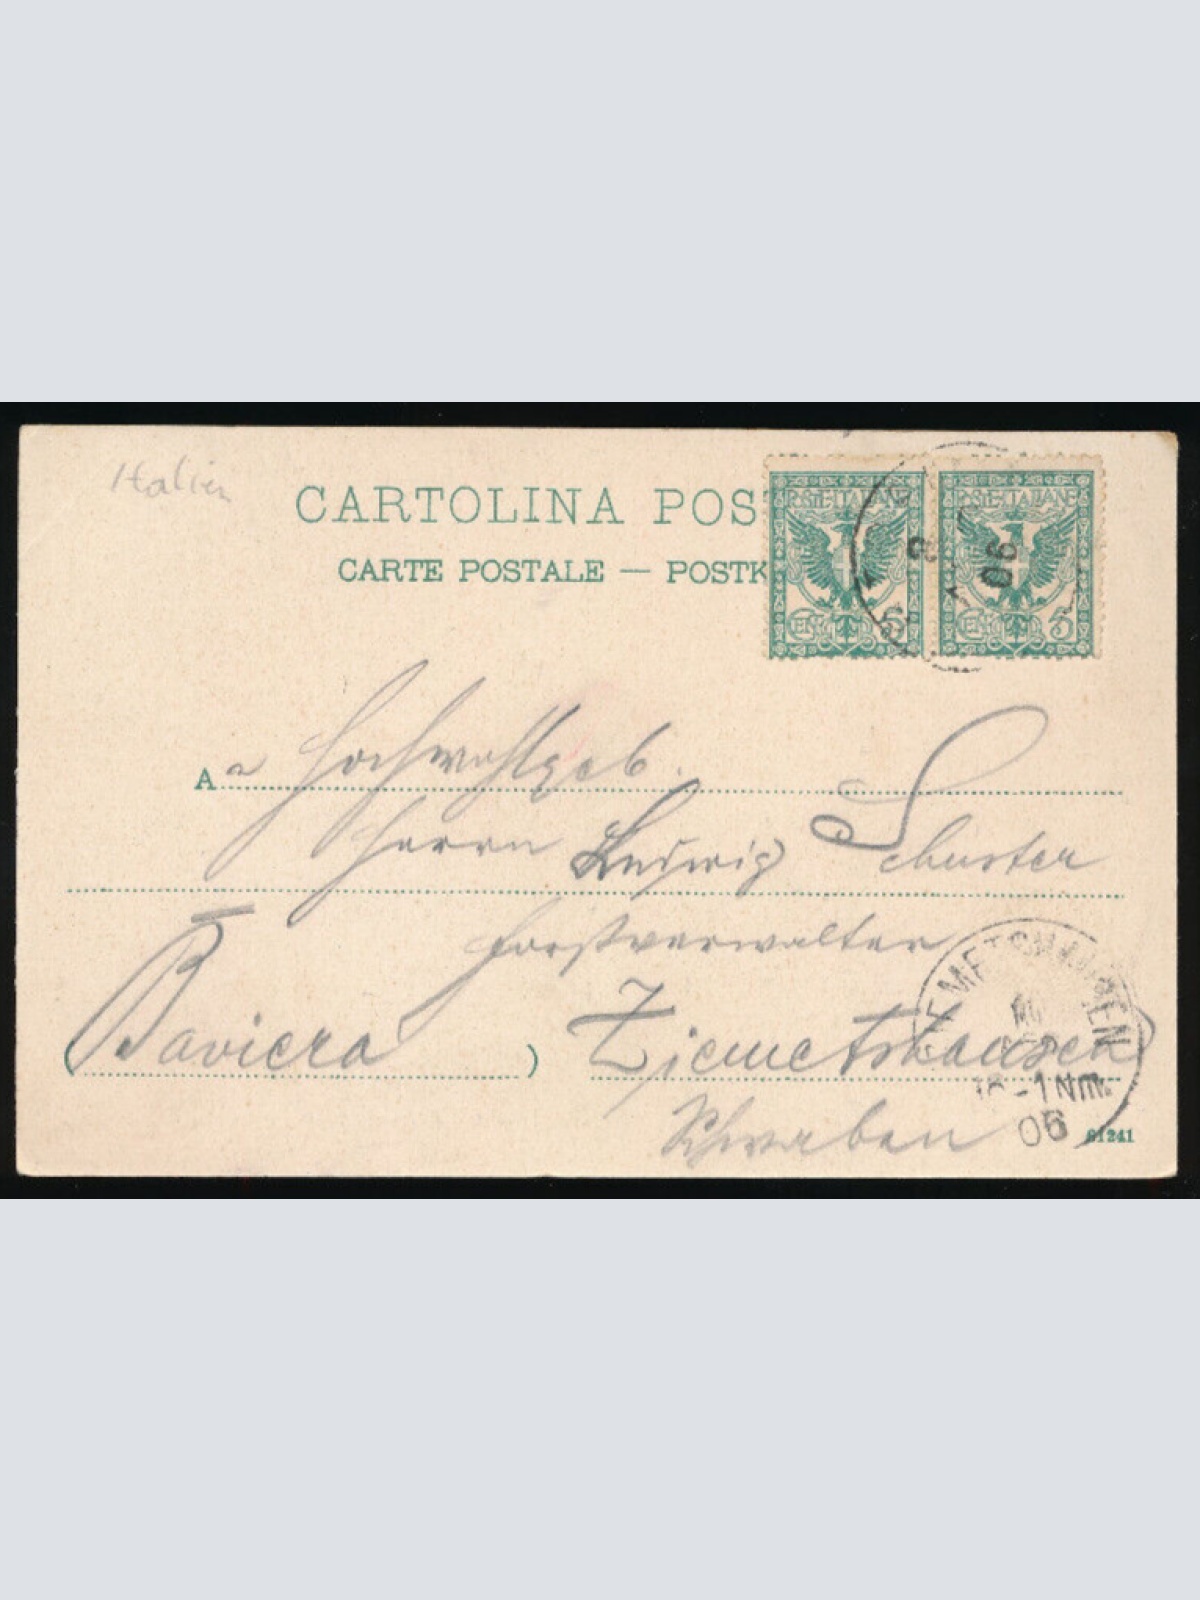 Italien
CARTOLINA POST
CARTE POSTALE — POSTK
POSTE ITALIANE POSTE ITALIANE
CENT 5 CENT 5
06
An Hochwohlgeb.
Herrn Ludwig Schuster
Forstverwalter
(Baviera) Ziemetshausen
Schwaben
ZIEMETSHAUSEN
12-1 Nm.
06
61241